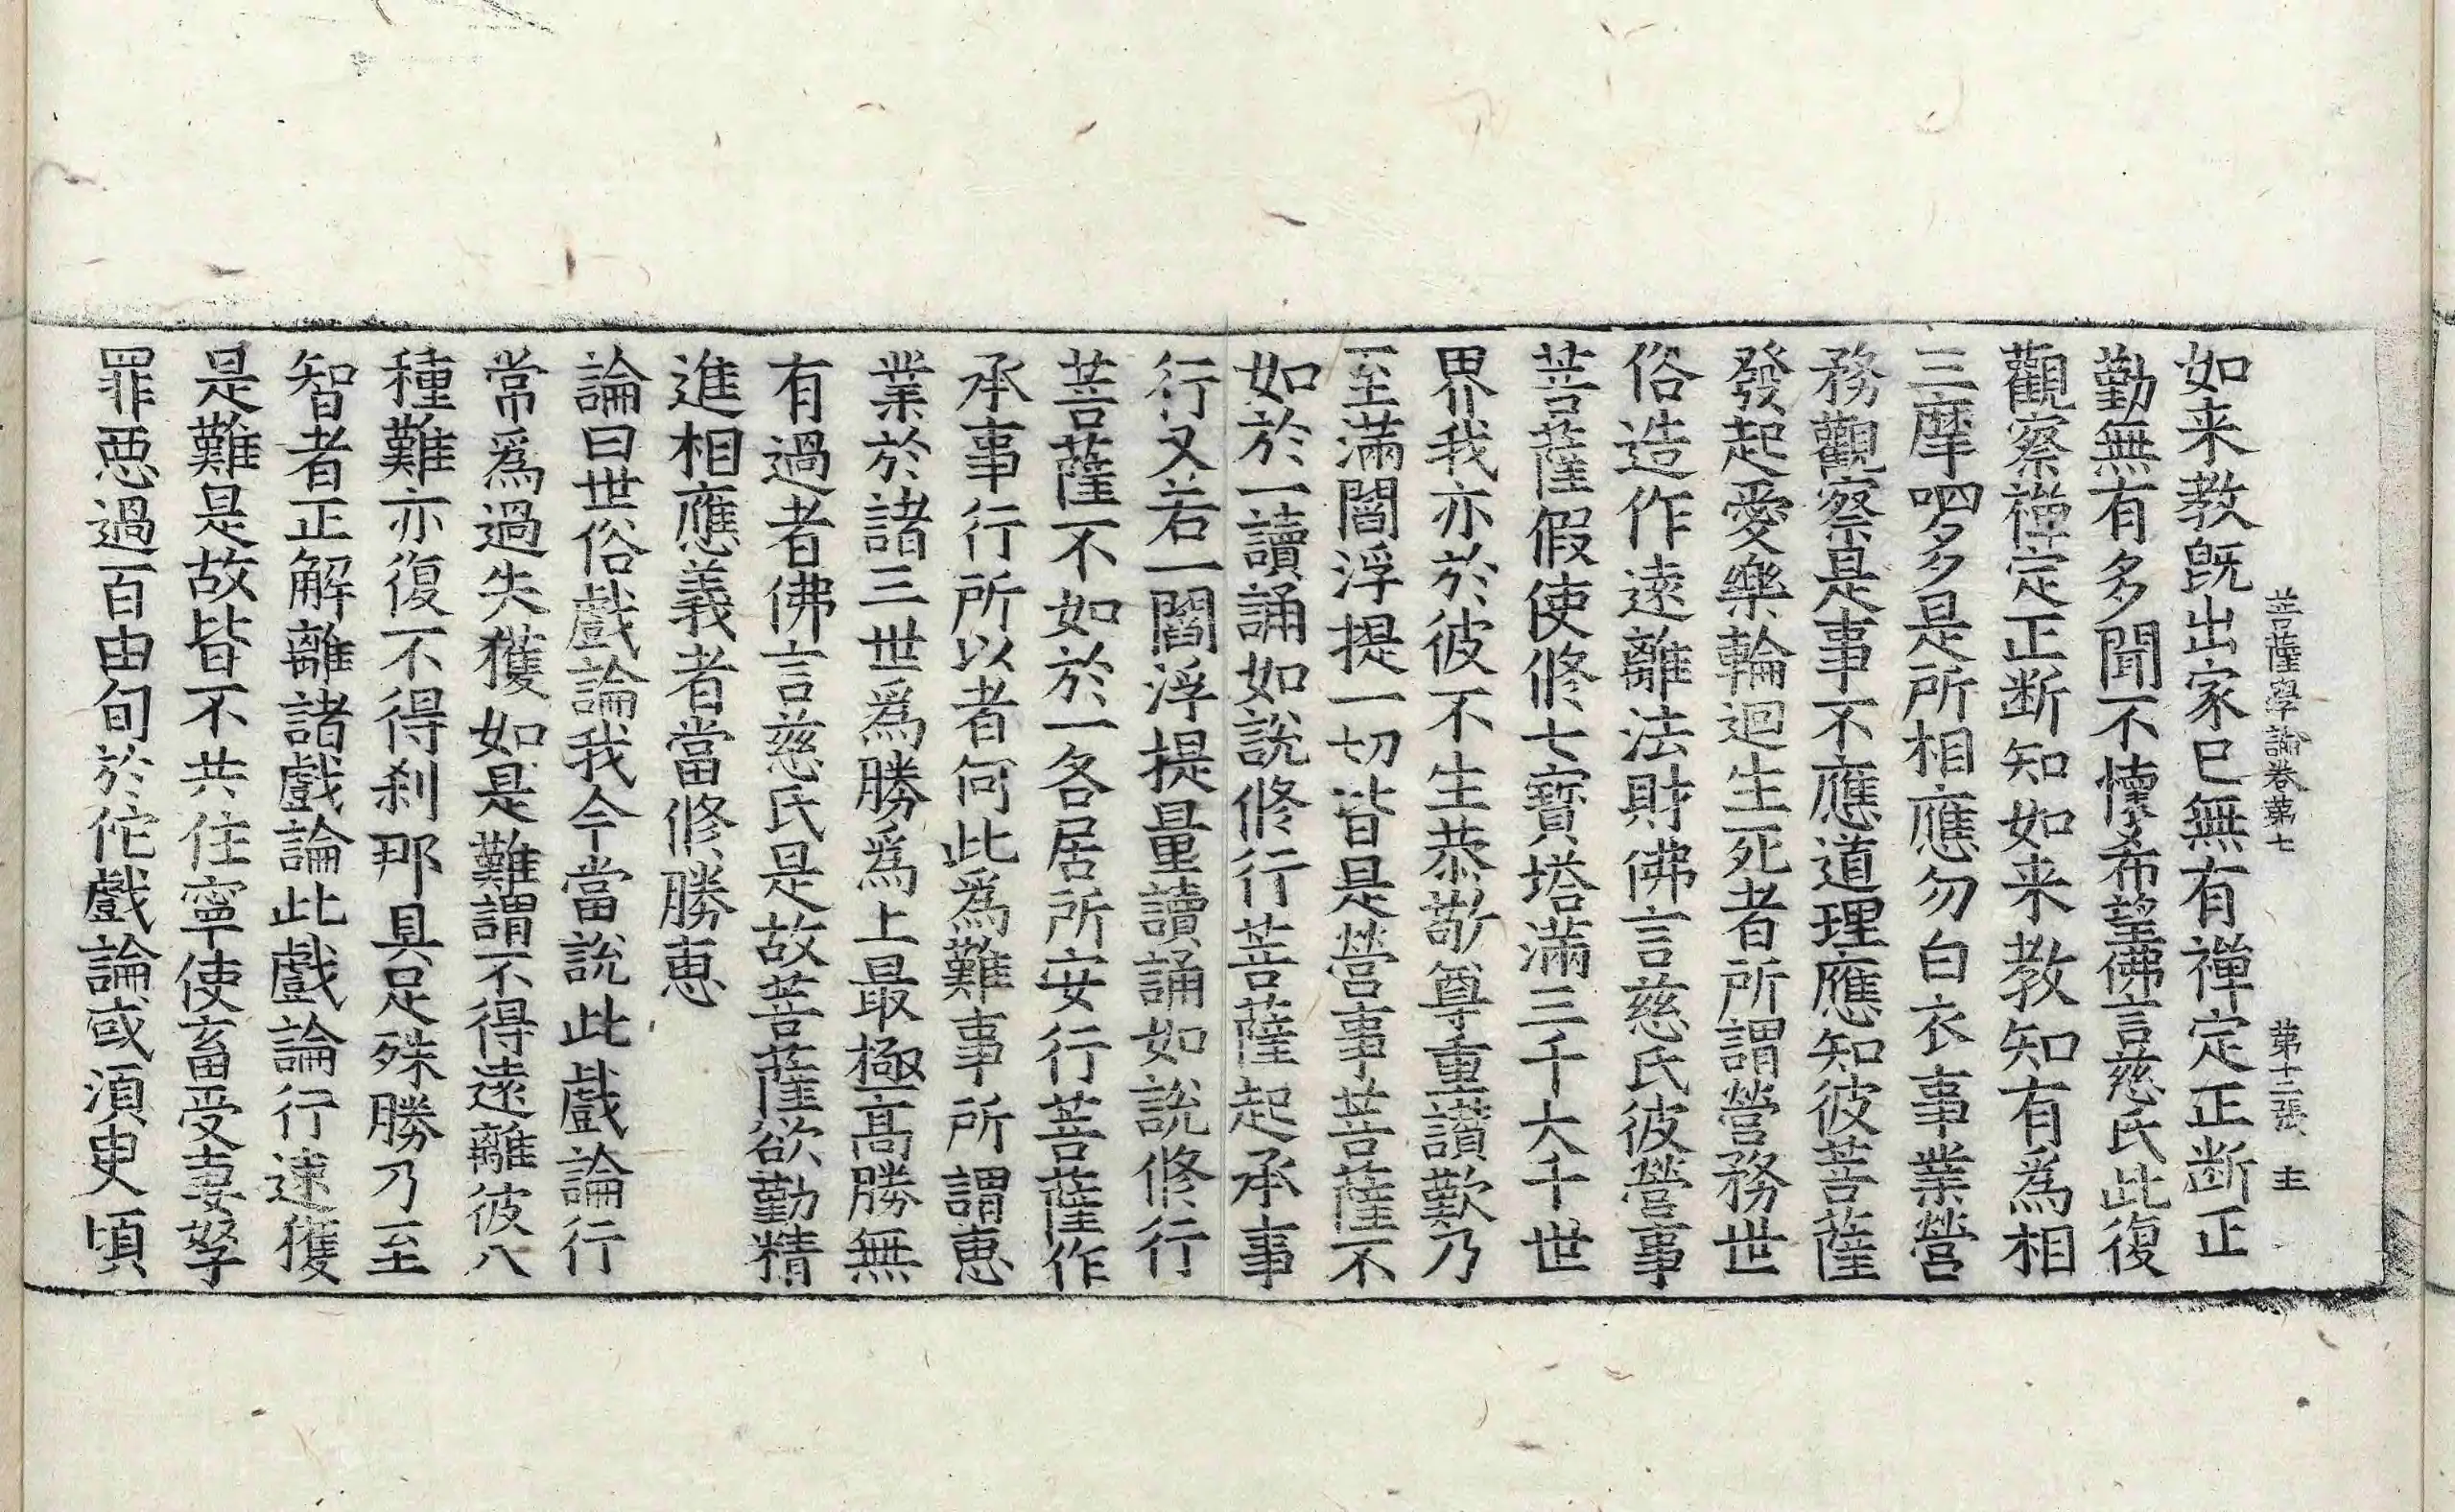 菩薩學論卷苐七　苐十二張　主
如来教旣出家已無有禪定正断正
勤無有多聞不懷希望佛言慈氏此復
觀察禪定正断知如来教知有爲相
三摩呬多是所相應勿白衣事業營
務觀察是事不應道理應知彼菩薩
發起愛樂輪迴生死者所謂營務世
俗造作遠離法財佛言慈氏彼營事
菩薩假使修七寶塔滿三千大千世
界我亦於彼不生恭敬尊重讃歎乃
至滿閻浮提一切皆是營事菩薩不
如於一讀誦如說修行菩薩起承事
行又若一閻浮提量讀誦如說修行
菩薩不如於一各居所安行菩薩作
承事行所以者何此爲難事所謂恵
業於諸三世爲勝爲上最極高勝無
有過者佛言慈氏是故菩薩欲勤精
進相應義者當修勝恵
論曰世俗戲論我今當說此戲論行
常爲過失獲如是難謂不得遠離彼八
種難亦復不得刹那具足殊勝乃至
智者正解離諸戲論此戲論行速獲
是難是故皆不共住寧使畜受妻孥
罪惡過百由旬於佗戲論或湏臾頃